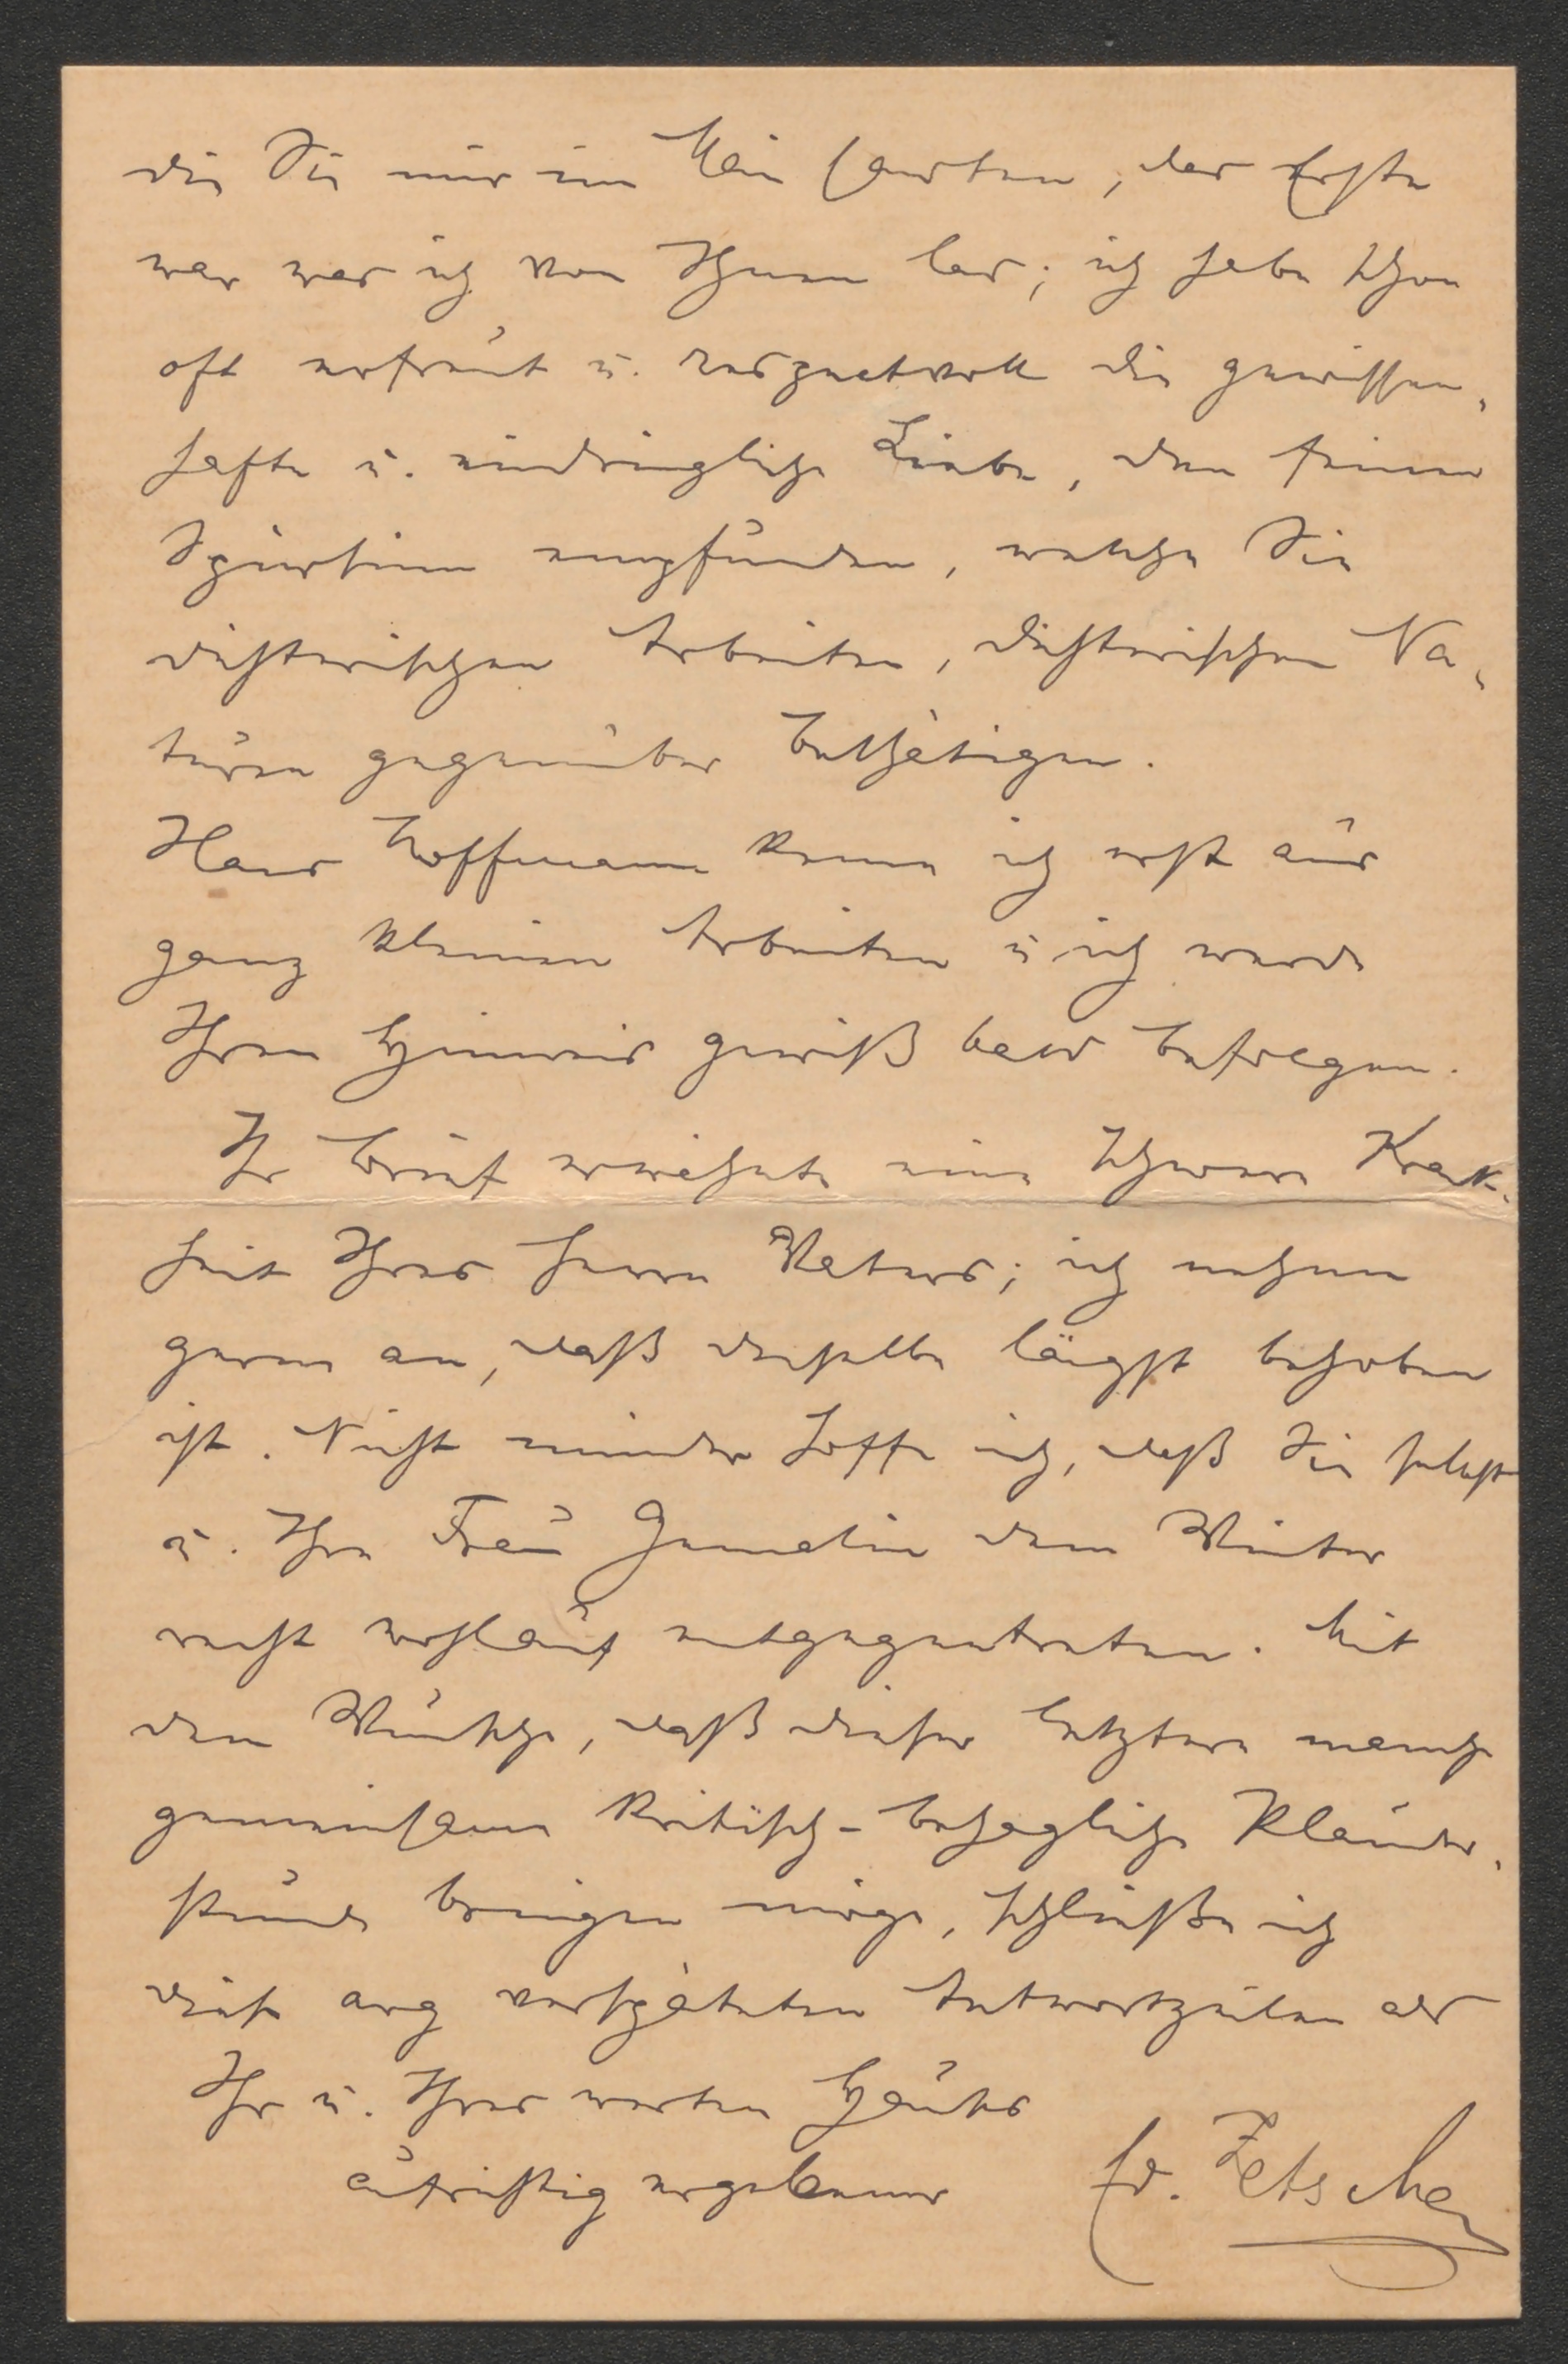 die Sie mir im Mai sandten, das Erste
war was ich von Ihnen las; ich habe schon
oft erfreut u. respectvoll die gewissen-
hafte u. eindringliche Liebe, den feinen
Spürsinn empfunden, welche Sie
dichterischen Arbeiten, dichterischen Na-
turen gegenüber bethätigen.
Hans Hoffmann kenne ich erst aus
ganz kleinen Arbeiten u ich werde
Ihren Hinweis gewiß bald befolgen.
Ihr Brief erwähnte eine schwere Krank-
heit Ihres Herrn Vaters; ich nehme
gerne an, daß dieselbe längst behoben
ist. Nicht minder hoffe ich, daß Sie selbst
u. Ihre Frau Gemalin dem Winter
recht wohlauf entgegentreten. Mit
dem Wunsche, daß dieser letztere manche
gemeinsame kritisch-behagliche Plauder-
stunde bringen möge, schließe ich
diese arg verspäteten Antwortzeilen als
Ihr u. Ihres werten Hauses
aufrichtig ergebener Ed. Zetsche